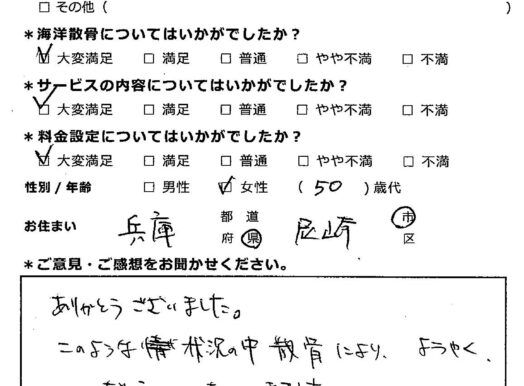 □ その他 ( )
*海洋散骨についてはいかがでしたか?
☑ 大変満足 □ 満足 □ 普通 □ やや不満 □ 不満
*サービスの内容についてはいかがでしたか?
☑ 大変満足 □ 満足 □ 普通 □ やや不満 □ 不満
*料金設定についてはいかがでしたか?
☑ 大変満足 □ 満足 □ 普通 □ やや不満 □ 不満
性別/年齢 □ 男性 ☑ 女性 ( 50 )歳代
お住まい 兵庫 都道府県 尼崎 市区
*ご意見・ご感想をお聞かせください。
ありがとうございました。
このような 状況の中 散骨により、ようやく、